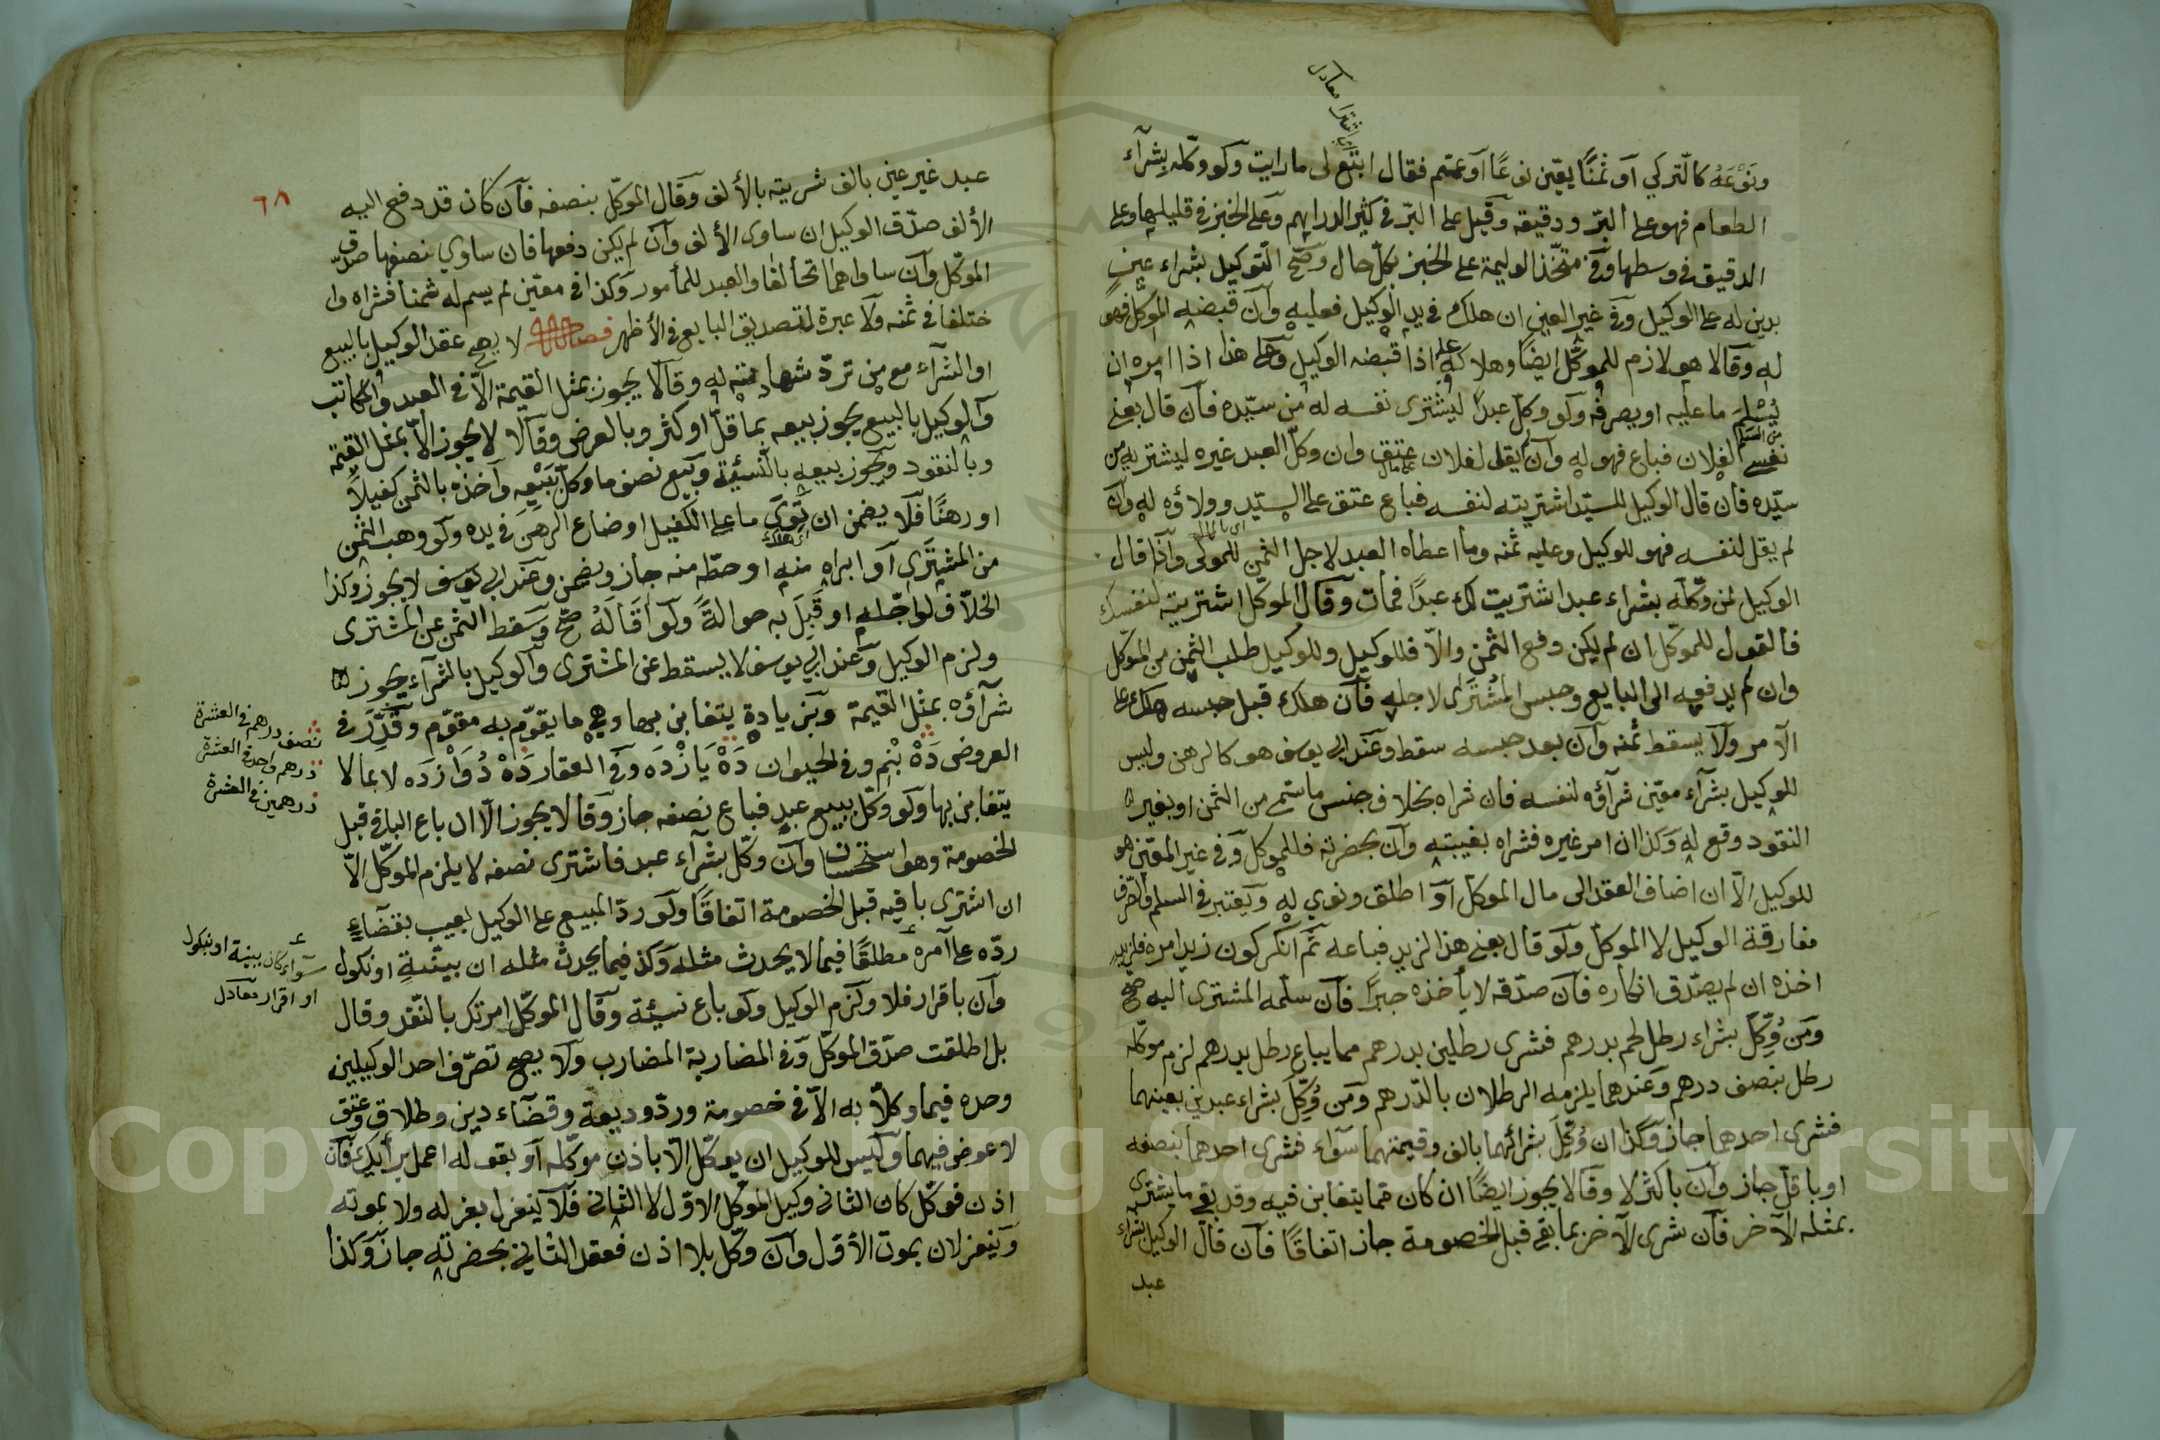 ونوعه كالتركي أو ثمنًا يعيّن نوعًا أو عمّم فقال ابتع لي ما رأيت ولو وكله بشرآء
الطعام فهو على البرّ ودقيقه وقيل على البرّ في كثير الدراهم وعلى الخبز في قليلها وعلى
الدقيق في وسطها وفي متخذ الوليمة على الخبز بكل حال وصحّ التوكيل بشراء عين
بدين له على الوكيل وفي غير العين ان هلك في يد الوكيل فعليه وان قبضه الموكل فهو
له وقالا هو لازم للموكل ايضًا وهلاكه عليه اذا قبضه الوكيل وعلى هذا اذا امره ان
يُسْلِمَ ما عليه او يصرفه ولو وكل عبدًا ليشتري نفسه له من سيّده فان قال بعني
نفسي لفلان فباع فهو له وان لم يقل لفلان عتق وان وكل العبد غيره ليشتريه من
سيّده فان قال الوكيل للسيّد اشتريته لنفسه فباع عتق على السيّد وولاؤه له وان
لم يقل لنفسه فهو للوكيل وعليه ثمنه وما اعطاه العبد لاجل الثمن للمولى واذا قال
الوكيل لمن وكله بشراء عبد اشتريت لك عبدًا فمات وقال الموكل اشتريته لنفسك
فالقول للموكل ان لم يكن دفع الثمن والّا فللوكيل وللوكيل طلب الثمن من الموكل
وان لم يدفعه الى البايع وحبس المُشتَرَى لاجله فان هلك قبل حبسه هلك على
الآمر ولا يسقط ثمنه وان بعد حبسه سقط وعند ابي يوسف هو كالرهن وليس
للوكيل بشرآء معيّن شرآؤه لنفسه فان شراه بخلاف جنس ما سمّي من الثمن او بغير
النقود وقع له وكذا ان امر غيره فشراه بغيبته وان بحضرته فللموكل وفي غير المعيّن هو
للوكيل الّا ان اضاف العقد الى مال الموكل أو اطلق ونوي له ويعتبر في السلم والصرف
مفارقة الوكيل لا الموكل ولو قال بعني هذا لزيد فباعه ثم انكر كون زيد امره فلزيد
اخذه ان لم يصدّق انكاره فان صدّقه لا يأخذه جبرًا فان سلّمه المشتري اليه صحّ
ومَن وُكِّلَ بشراء رطل لحم بدرهم فشرى رطلين بدرهم مما يباع رطل بدرهم لزم موكله
رطل بنصف درهم وعندهما يلزمه الرطلان بالدّرهم ومَن وُكِّلَ بشراء عبدين بعينهما
فشرى احدهما جاز وكذا ان وُكِّلَ بشرائهما بالف وقيمتهما سوآء فشرى احدهما بنصفه
او باقلّ جاز وان باكثر لا وقالا يجوز ايضًا ان كان مما يتغابن فيه وقد بقي ما يشتري
بمثله الآخر فان شرى الآخر بما بقي قبل الخصومة جاز اتفاقًا فان قال الوكيل بشراء
عبد
٦٨
عبد غير عين بالف شريته بالألف وقال الموكّل بنصفه فان كان قد دفع اليه
الألف صدّق الوكيل ان ساوى الألف وان لم يكن دفعها فان ساوي نصفها صدّق
الموكّل وان ساواها تحالفا والعبد للمأمور وكذا في معيّن لم يسم له ثمنا فشراه وا
ختلفا في ثمنه ولا عبرة لتصديق البايع في الأظهر فصل لا يصح عقد الوكيل بالبيع
او الشرآء مع مَن تردّ شهادته له وقالا يجوز بمثل القيمة الّا في العبد والمكاتب
والوكيل بالبيع يجوز بيعه بما قلّ او كثر وبالعرض وقالا لا يجوز الّا بمثل القيمة
وبالنقود ويجوز بيعه بالنسيئة وبيع نصف ما وكل ببَيْعِه وأخذه بالثمن كفيلًا
او رهنًا فلا يضمن ان تَوِيَ ما على الكفيل او ضاع الرهن في يده ولو وهب الثمن
اي هلك
من المشتري أو ابراه منه او حطّه منه جاز ويضمن وعند ابي يوسف لا يجوز وكذا
الخلاف لو اجّله او قَبِلَ به حوالةً ولو اَقَالَهُ صحّ وسقط الثمن عن المشتري
ولزم الوكيل وعند ابي يوسف لا يسقط عن المشتري والوكيل بالشرآء يجوز
شرآؤه بمثل القيمة وبزيادة يتغابن بها وهي ما يقوّم به مقوّم وقُدِّرَ في
العروض دَهْ نيْم وفي الحيوان دَهْ يَازْدَه وفي العقار دَهْ دُوَازْدَه لا بما لا
يتغابن بها ولو وكّل ببيع عبد فباع نصفه جاز وقالا لا يجوز الّا ان باع الباقي قبل
الخصومة وهو استحسان وان وكّل بشرآء عبد فاشترى نصفه لا يلزم الموكّل الّا
ان اشترى باقيه قبل الخصومة اتفاقًا ولو ردّ المبيع على الوكيل بعيب بقضآء
ردّه على آمره مطلقًا فيما لا يحدث مثله وكذا فيما يحدث مثله ان ببيّنةٍ او نكول
وان باقرار فلا ولزم الوكيل ولو باع نسيئة وقال الموكّل امرتك بالنّقد وقال
بل اطلقت صدّق الموكّل وفي المضاربة المضارب ولا يصح تصرّف احد الوكيلين
وحده فيما وكلّا به الّا في خصومة وردّ وديعة وقضآء دين وطلاق وعتق
لا عوض فيهما وليس للوكيل ان يوكّل الّا باذن موكّله أو بقوله اعمل برأيك فان
اذن فوكّل كان الثاني وكيل الموكّل الاوّل لا الثاني فلا ينعزل بعزله ولا بموته
وينعزلان بموت الأوّل وان وكّل بلا اذن فعقد الثاني بحضرته جاز وكذا
نصف درهم في العشرة
درهم واحد في العشرة
درهمين في العشرة
سوآء كان ببينة او نكول
او اقرار معادل
Copyright © King Saud University